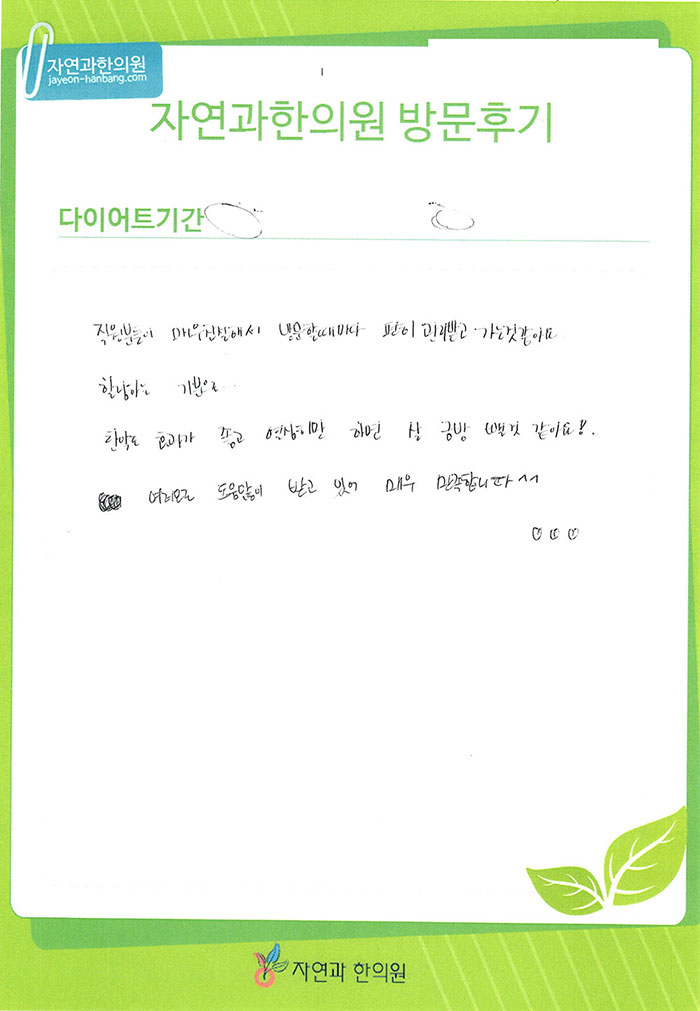 자연과한의원
jayeon-hanbang.com
자연과한의원 방문후기
다이어트기간
직원분들이 매우친절해서 방문할때마다 관리받고 가는것같아요
힐링하는 기분으로...
한약도 효과가 좋고 열심히만 하면 살 금방 뺄것 같아요!.
여러모로 도움많이 받고 있어 매우 만족합니다^^
자연과 한의원